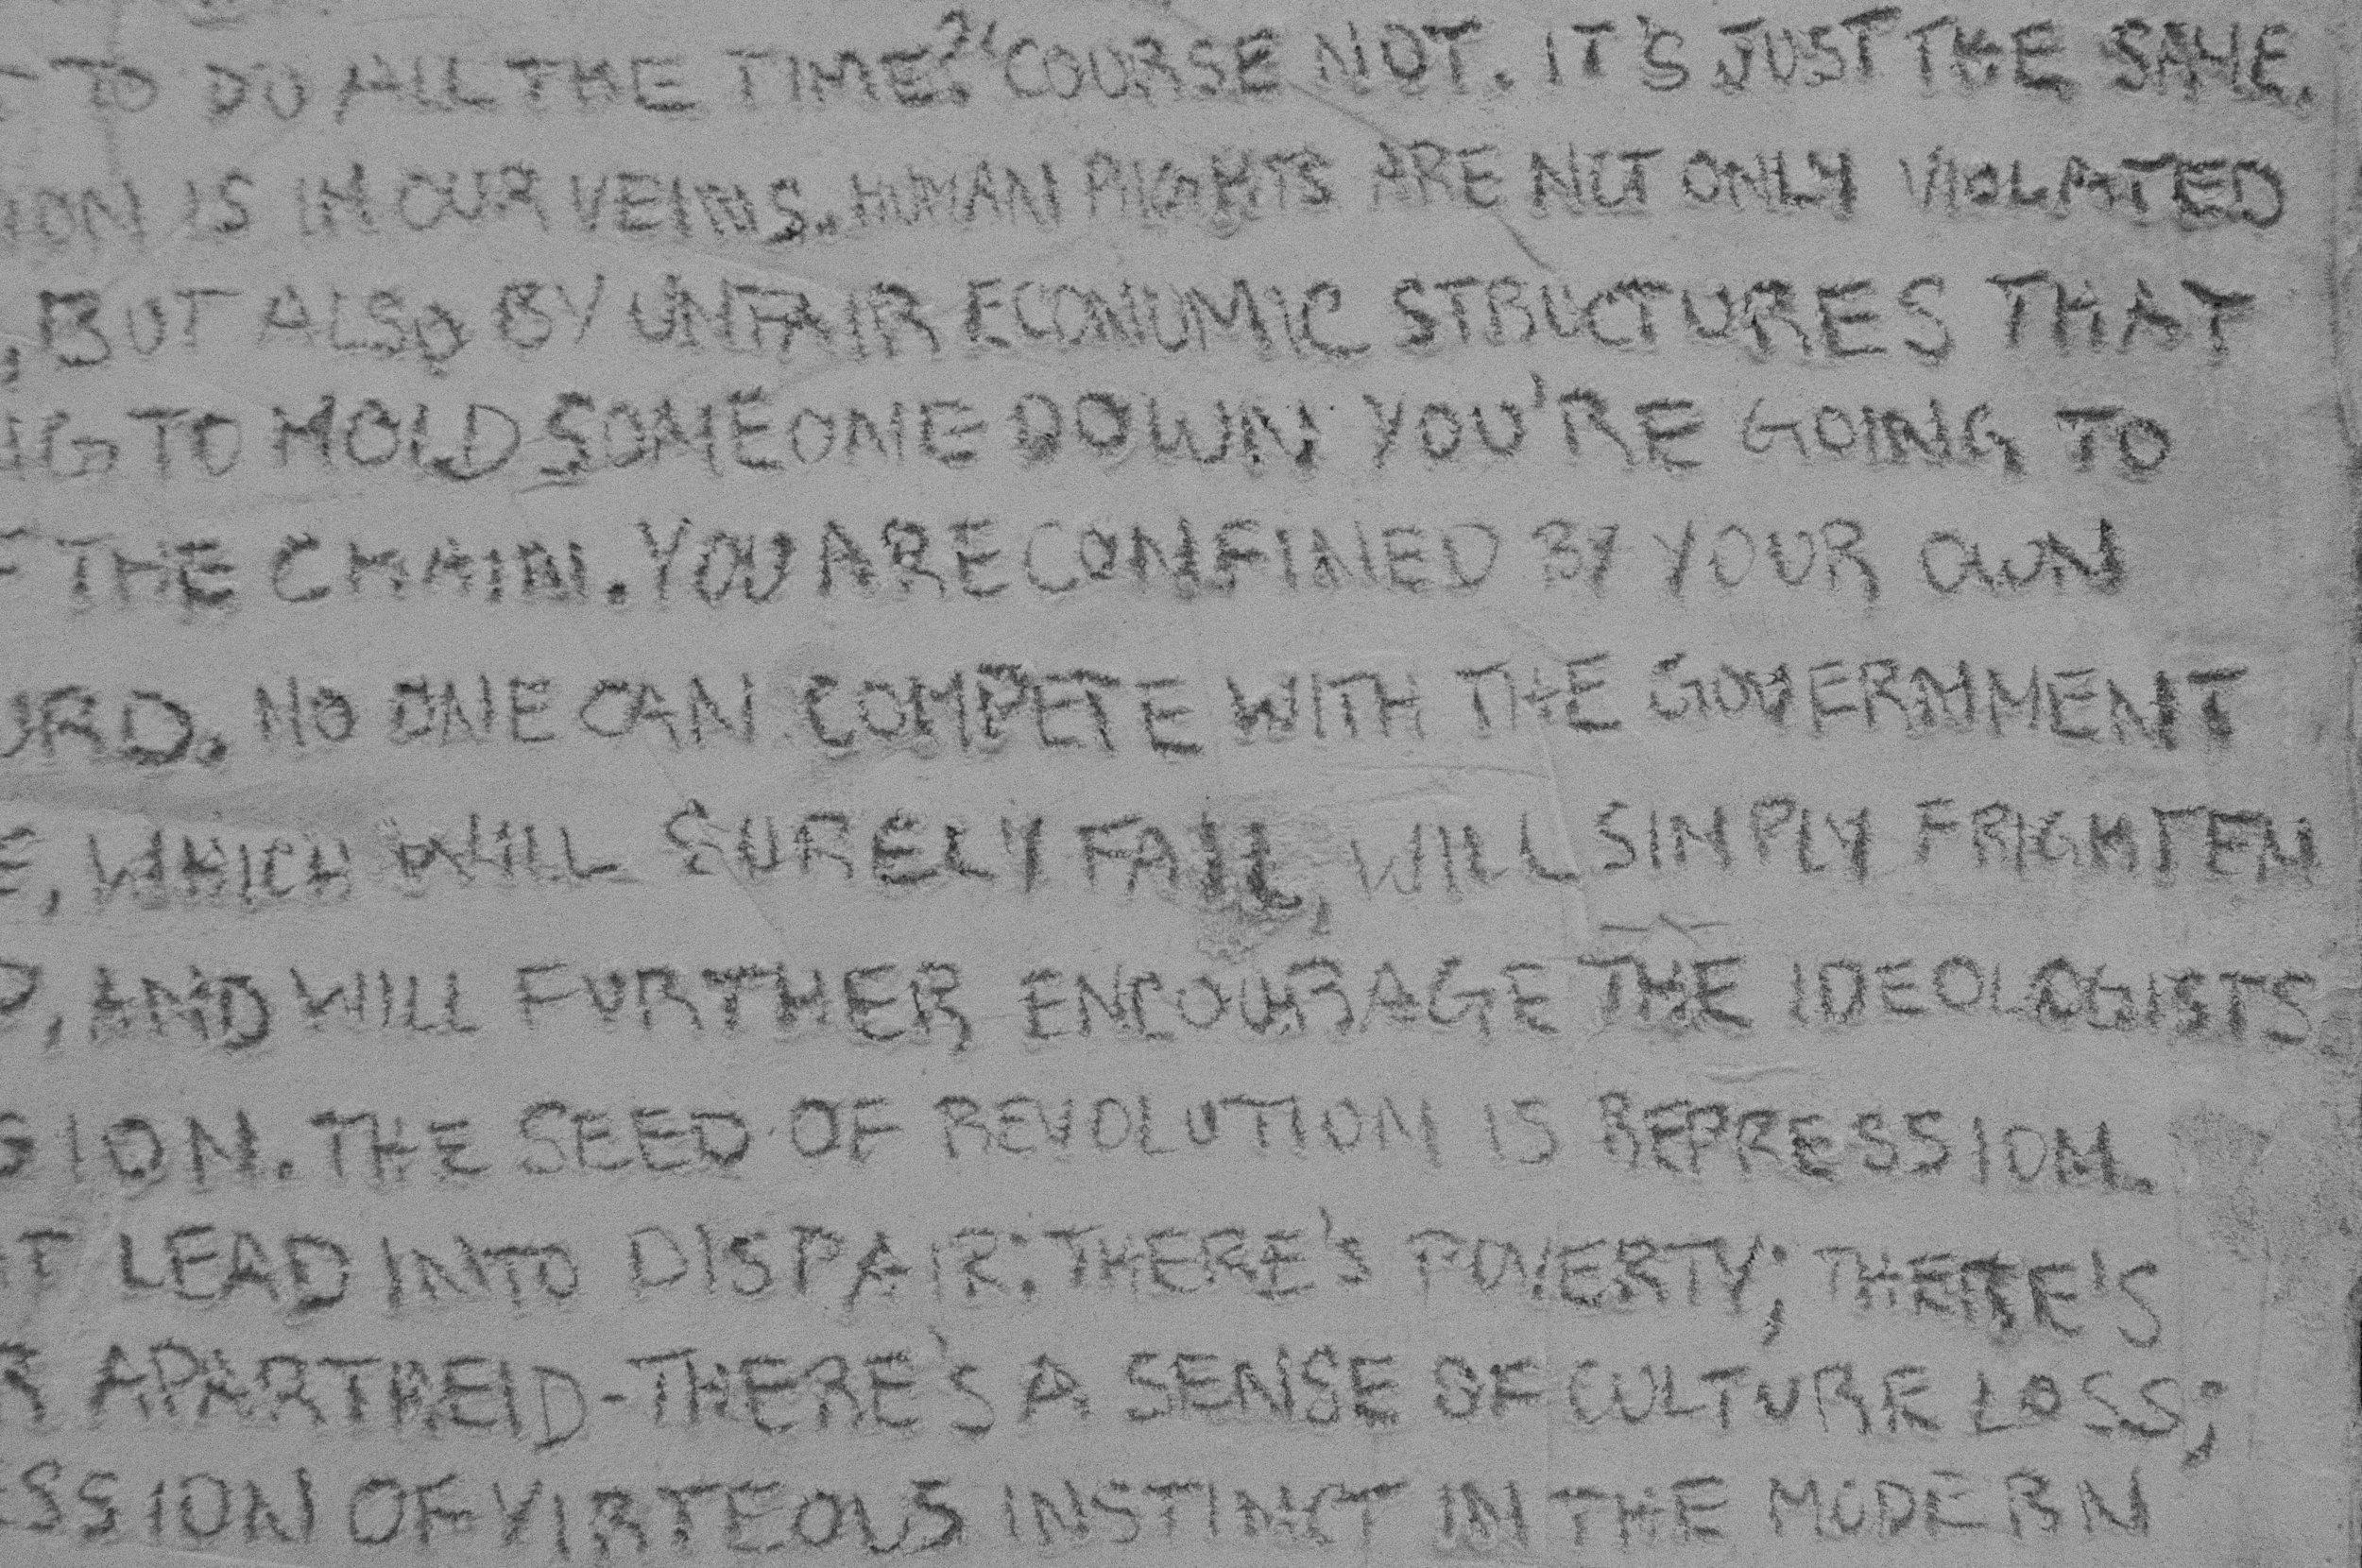 TO DO ALL THE TIME?' COURSE NOT. IT'S JUST THE SAME.
ION IS IN OUR VEINS. HUMAN RIGHTS ARE NOT ONLY VIOLATED
, BUT ALSO BY UNFAIR ECONOMIC STRUCTURES THAT
NG TO HOLD SOMEONE DOWN YOU'RE GOING TO
THE CHAIN. YOU ARE CONFINED BY YOUR OWN
URD. NO ONE CAN COMPETE WITH THE GOVERNMENT
E, WHICH WILL SURELY FAIL, WILL SIMPLY FRIGHTEN
, AND WILL FURTHER ENCOURAGE THE IDEOLOGISTS
SION. THE SEED OF REVOLUTION IS REPRESSION.
T LEAD INTO DISPAIR: THERE'S POVERTY; THERE'S
R APARTHEID-THERE'S A SENSE OF CULTURE LOSS;
ESSION OF VIRTEOUS INSTINCT IN THE MODERN